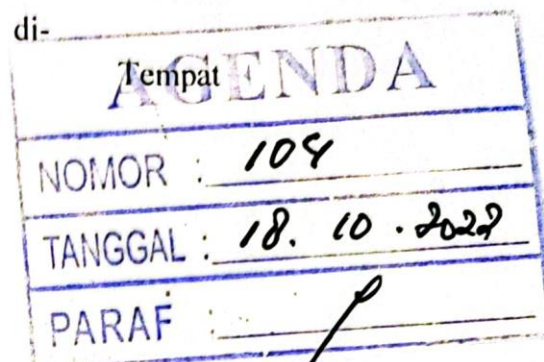 di-
Tempat
AGENDA
NOMOR : 104
TANGGAL : 18. 10 . 2022
PARAF :